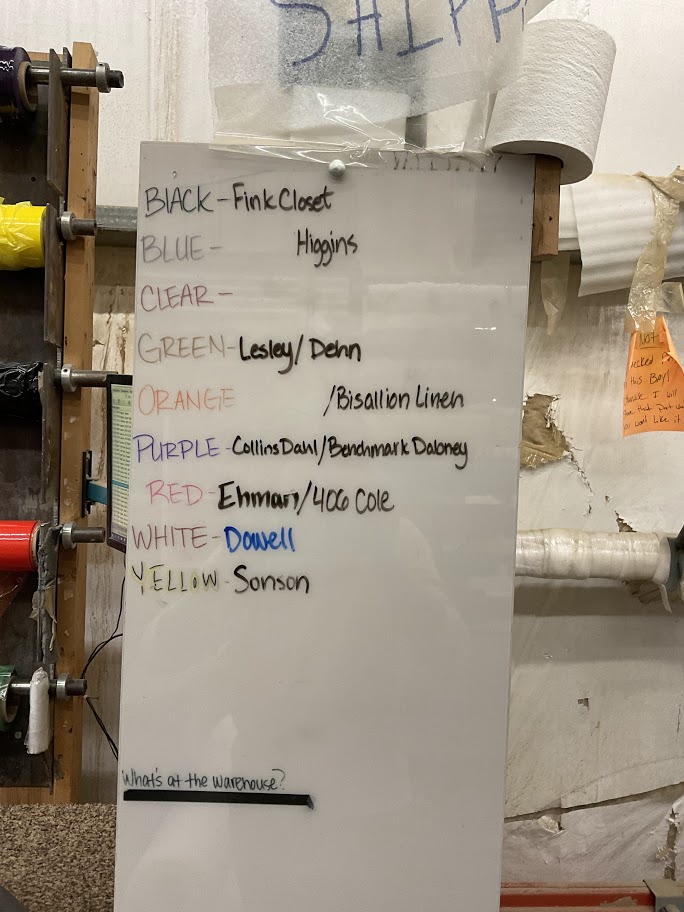 SHIPP
BLACK - Fink Closet
BLUE - Higgins
CLEAR -
GREEN - Lesley / Dehn
ORANGE /Bisallion Linen
PURPLE - Collins Dahl/Benchmark Daloney
RED - Ehman/406 Cole
WHITE - Dowell
YELLOW - Sonson
What's at the warehouse?
Not
this Box!
I will
like it